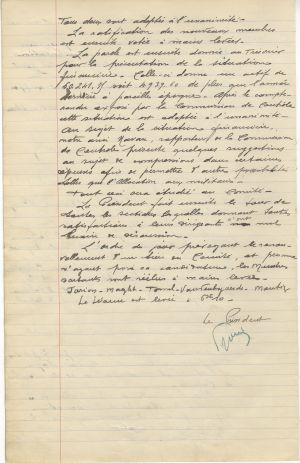 Tous deux sont adoptés à l'unanimité.
La ratification des nouveaux membres
est ensuite votée à mains levées.
La parole est ensuite donnée au Trésorier
pour la présentation de la situation
financière. Celle-ci donne un actif de
soit de plus que l'année
dernière à pareille époque. Après le compte-
rendu exposé par la Commission de Contrôle
cette situation est adoptée à l'unanimité.
Au sujet de la situation financière,
notre ami rapporteur de la Commission
de Contrôle présente quelques suggestions
au sujet de compressions dans certaines
dépenses afin de permettre d'autres
telles que l'allocation aux militaires.
Tout ceci sera étudié au Comité.
Le Président fait ensuite le tour de
toutes les sections lesquelles donnant toutes
satisfaction à leurs dirigeants n'ont nul
besoin de discussion.
L'ordre du jour prévoyant le renou-
vellement d'un tiers du Comité, et personne
n'ayant posé sa candidature, les Membres
suivants sont réélus à mains levées
Le Séance est levée à
Le Président